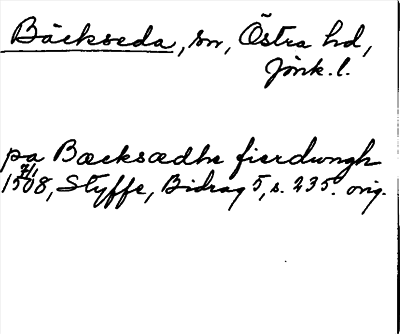 Bäckseda, sn, Östra hd,
Jönk. l.
pa Bæcksædhe fierdungh
1508, Styffe, Bidrag 5, s. 235. orig.